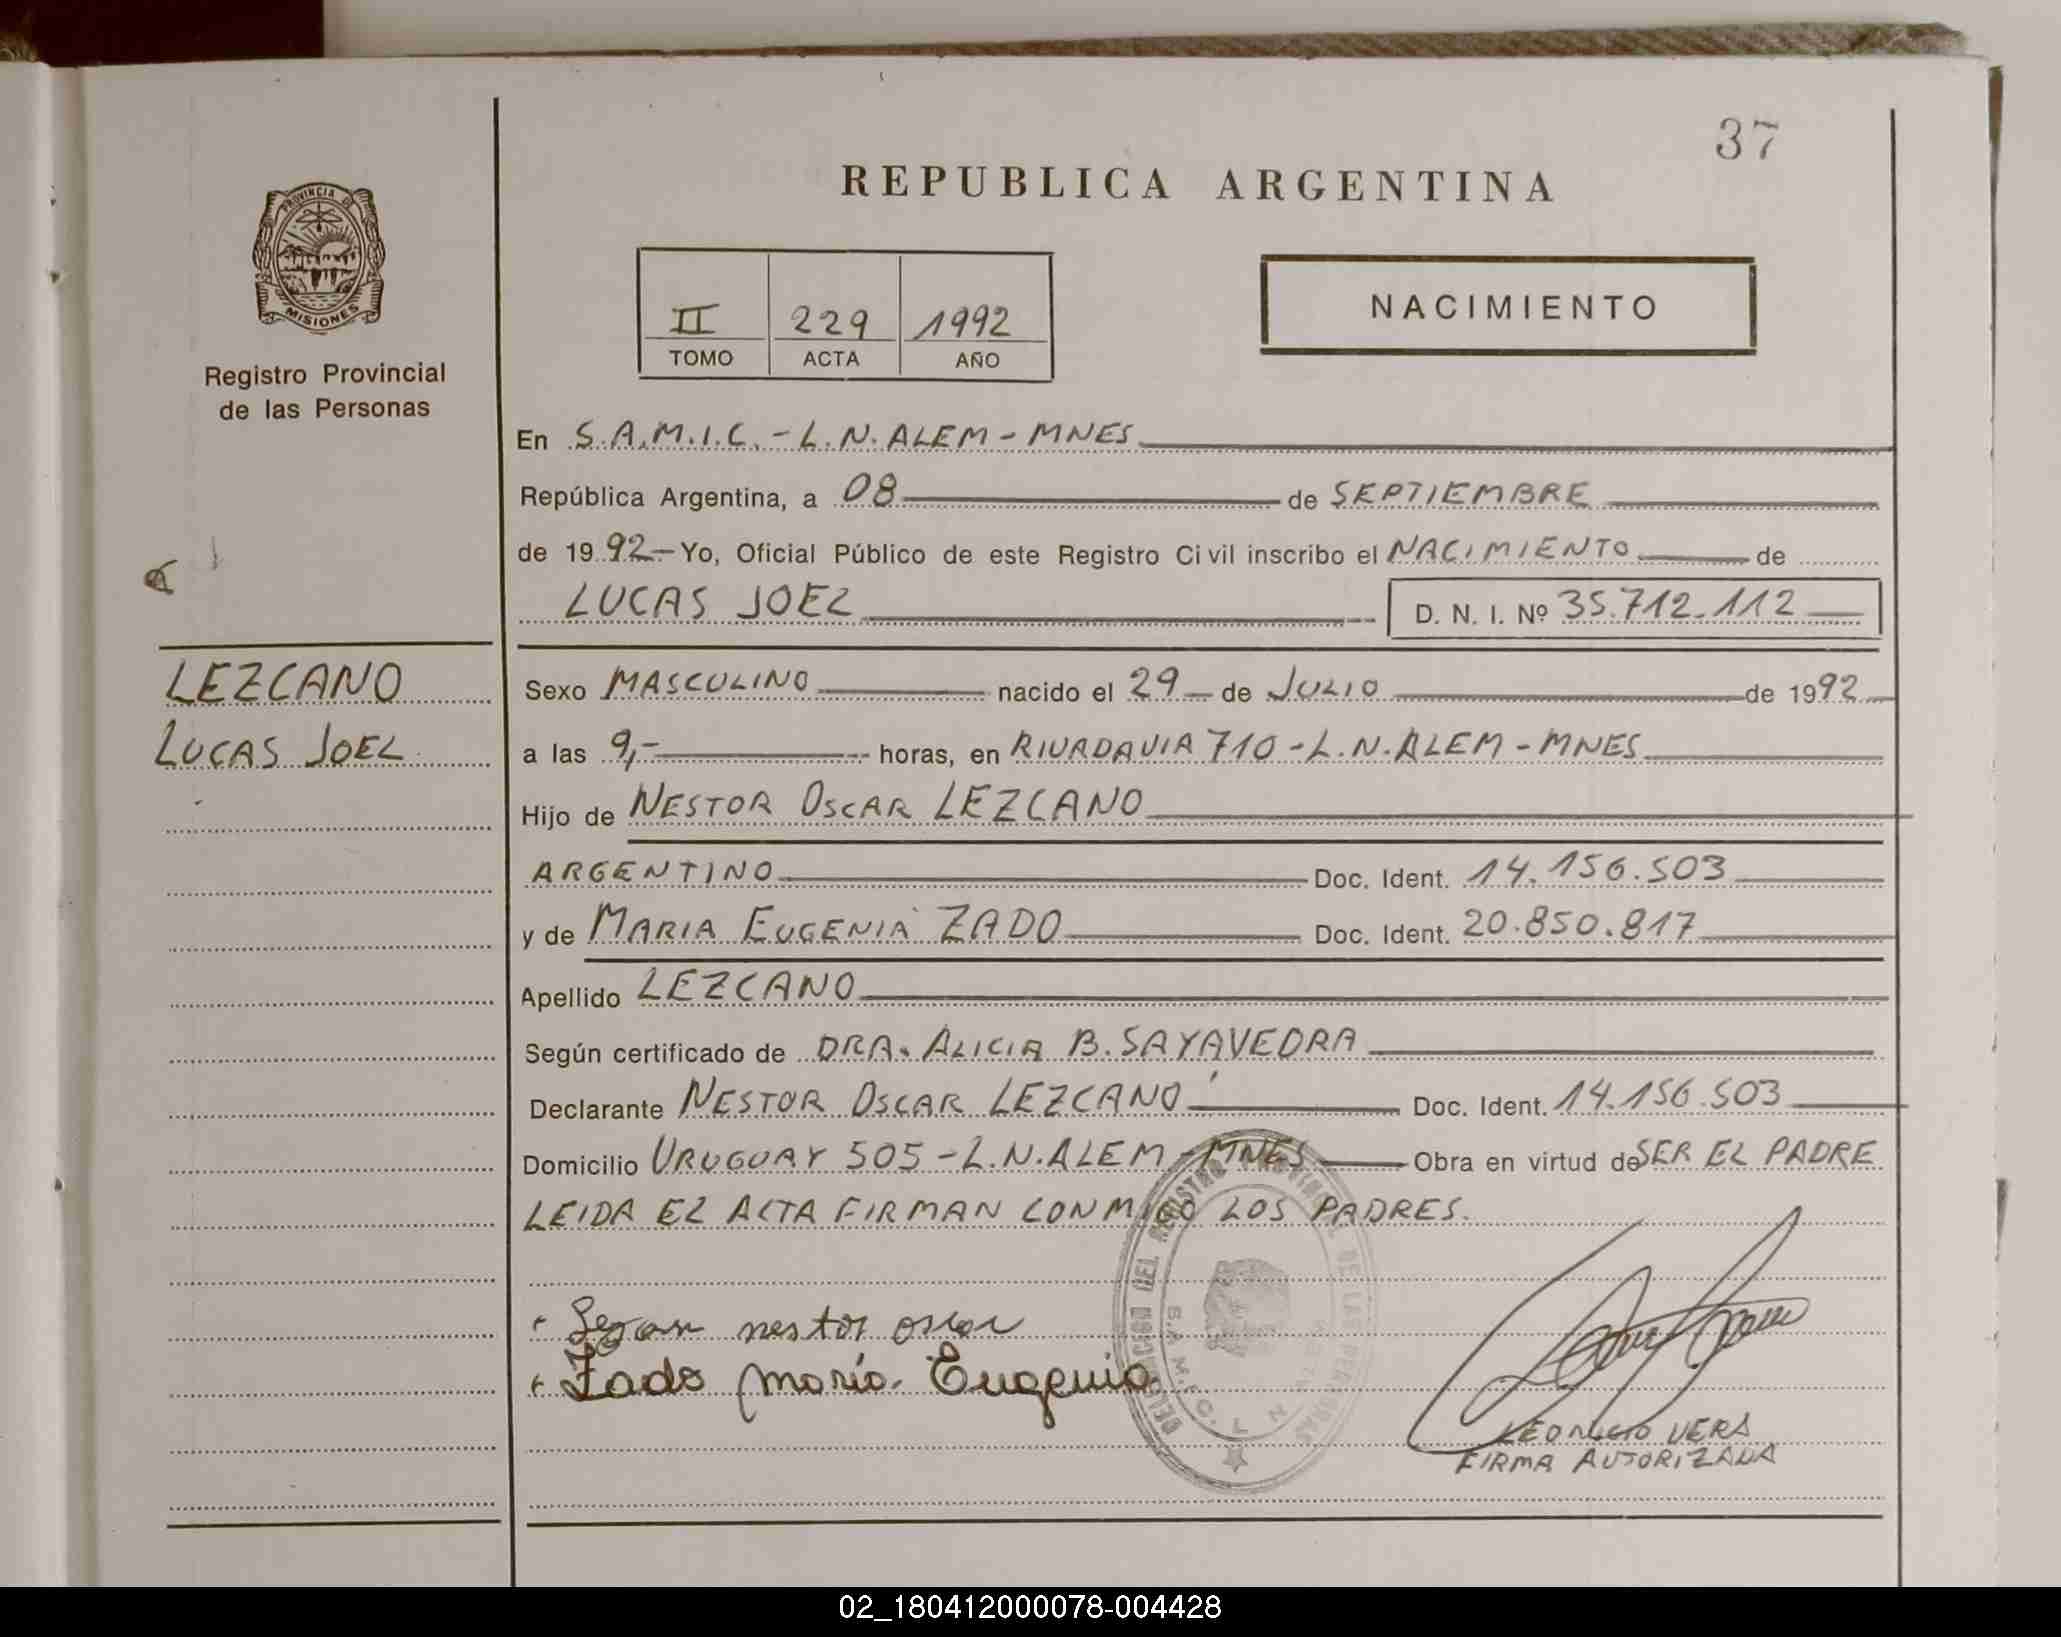 37
REPUBLICA ARGENTINA
PROVINCIA DE
MISIONES
Registro Provincial
de las Personas
II 229 1992
TOMO ACTA AÑO
NACIMIENTO
En S.A.M.I.C. - L.N. ALEM - MNES
República Argentina, a 08 de SEPTIEMBRE
de 1992 - Yo, Oficial Público de este Registro Civil inscribo el NACIMIENTO de
LUCAS JOEL D. N. I. Nº 35.712.112
LEZCANO
LUCAS JOEL
Sexo MASCULINO nacido el 29 de JULIO de 1992
a las 9,- horas, en RIVADAVIA 710 - L.N. ALEM - MNES
Hijo de NESTOR OSCAR LEZCANO
ARGENTINO Doc. Ident. 14.156.503
y de MARIA EUGENIA ZADO Doc. Ident. 20.850.817
Apellido LEZCANO
Según certificado de DRA. ALICIA B. SAYAVEDRA
Declarante NESTOR OSCAR LEZCANO Doc. Ident. 14.156.503
Domicilio URUGUAY 505 - L.N. ALEM - MNES Obra en virtud de SER EL PADRE
LEIDA EL ACTA FIRMAN CONMIGO LOS PADRES.
nestor oscar
Zado maría Eugenia
DELEGACION DEL REGISTRO PROVINCIAL DE LAS PERSONAS
LEONCIO VERA
FIRMA AUTORIZADA
02_180412000078-004428